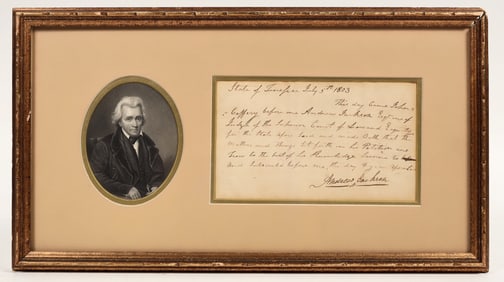 State of Tennessee July 5th 1803
This day came John
Caffery before me Andrew Jackson Esqr one of
Judges of the Superior Court of Law and Equity
for the State afore said and made Oath that the
matters and things set forth in his Petition are
True to the best of his Knowledge Sworn to
and Subscribed before me the day
Andrew Jackson